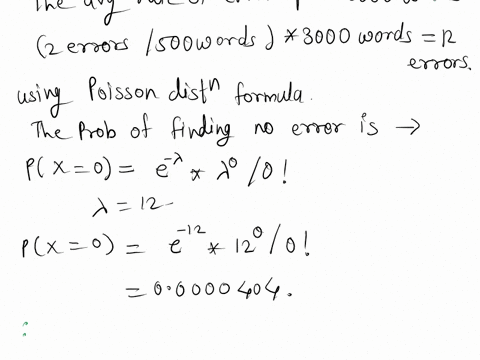 (2 errors /500 words) * 3000 words = 12
errors.
using Poisson distⁿ formula.
The Prob of finding no error is →
P(X=0) = e^-λ * λ⁰/0!
λ = 12
P(X=0) = e^-12 * 12⁰/0!
= 0.0000404.
: